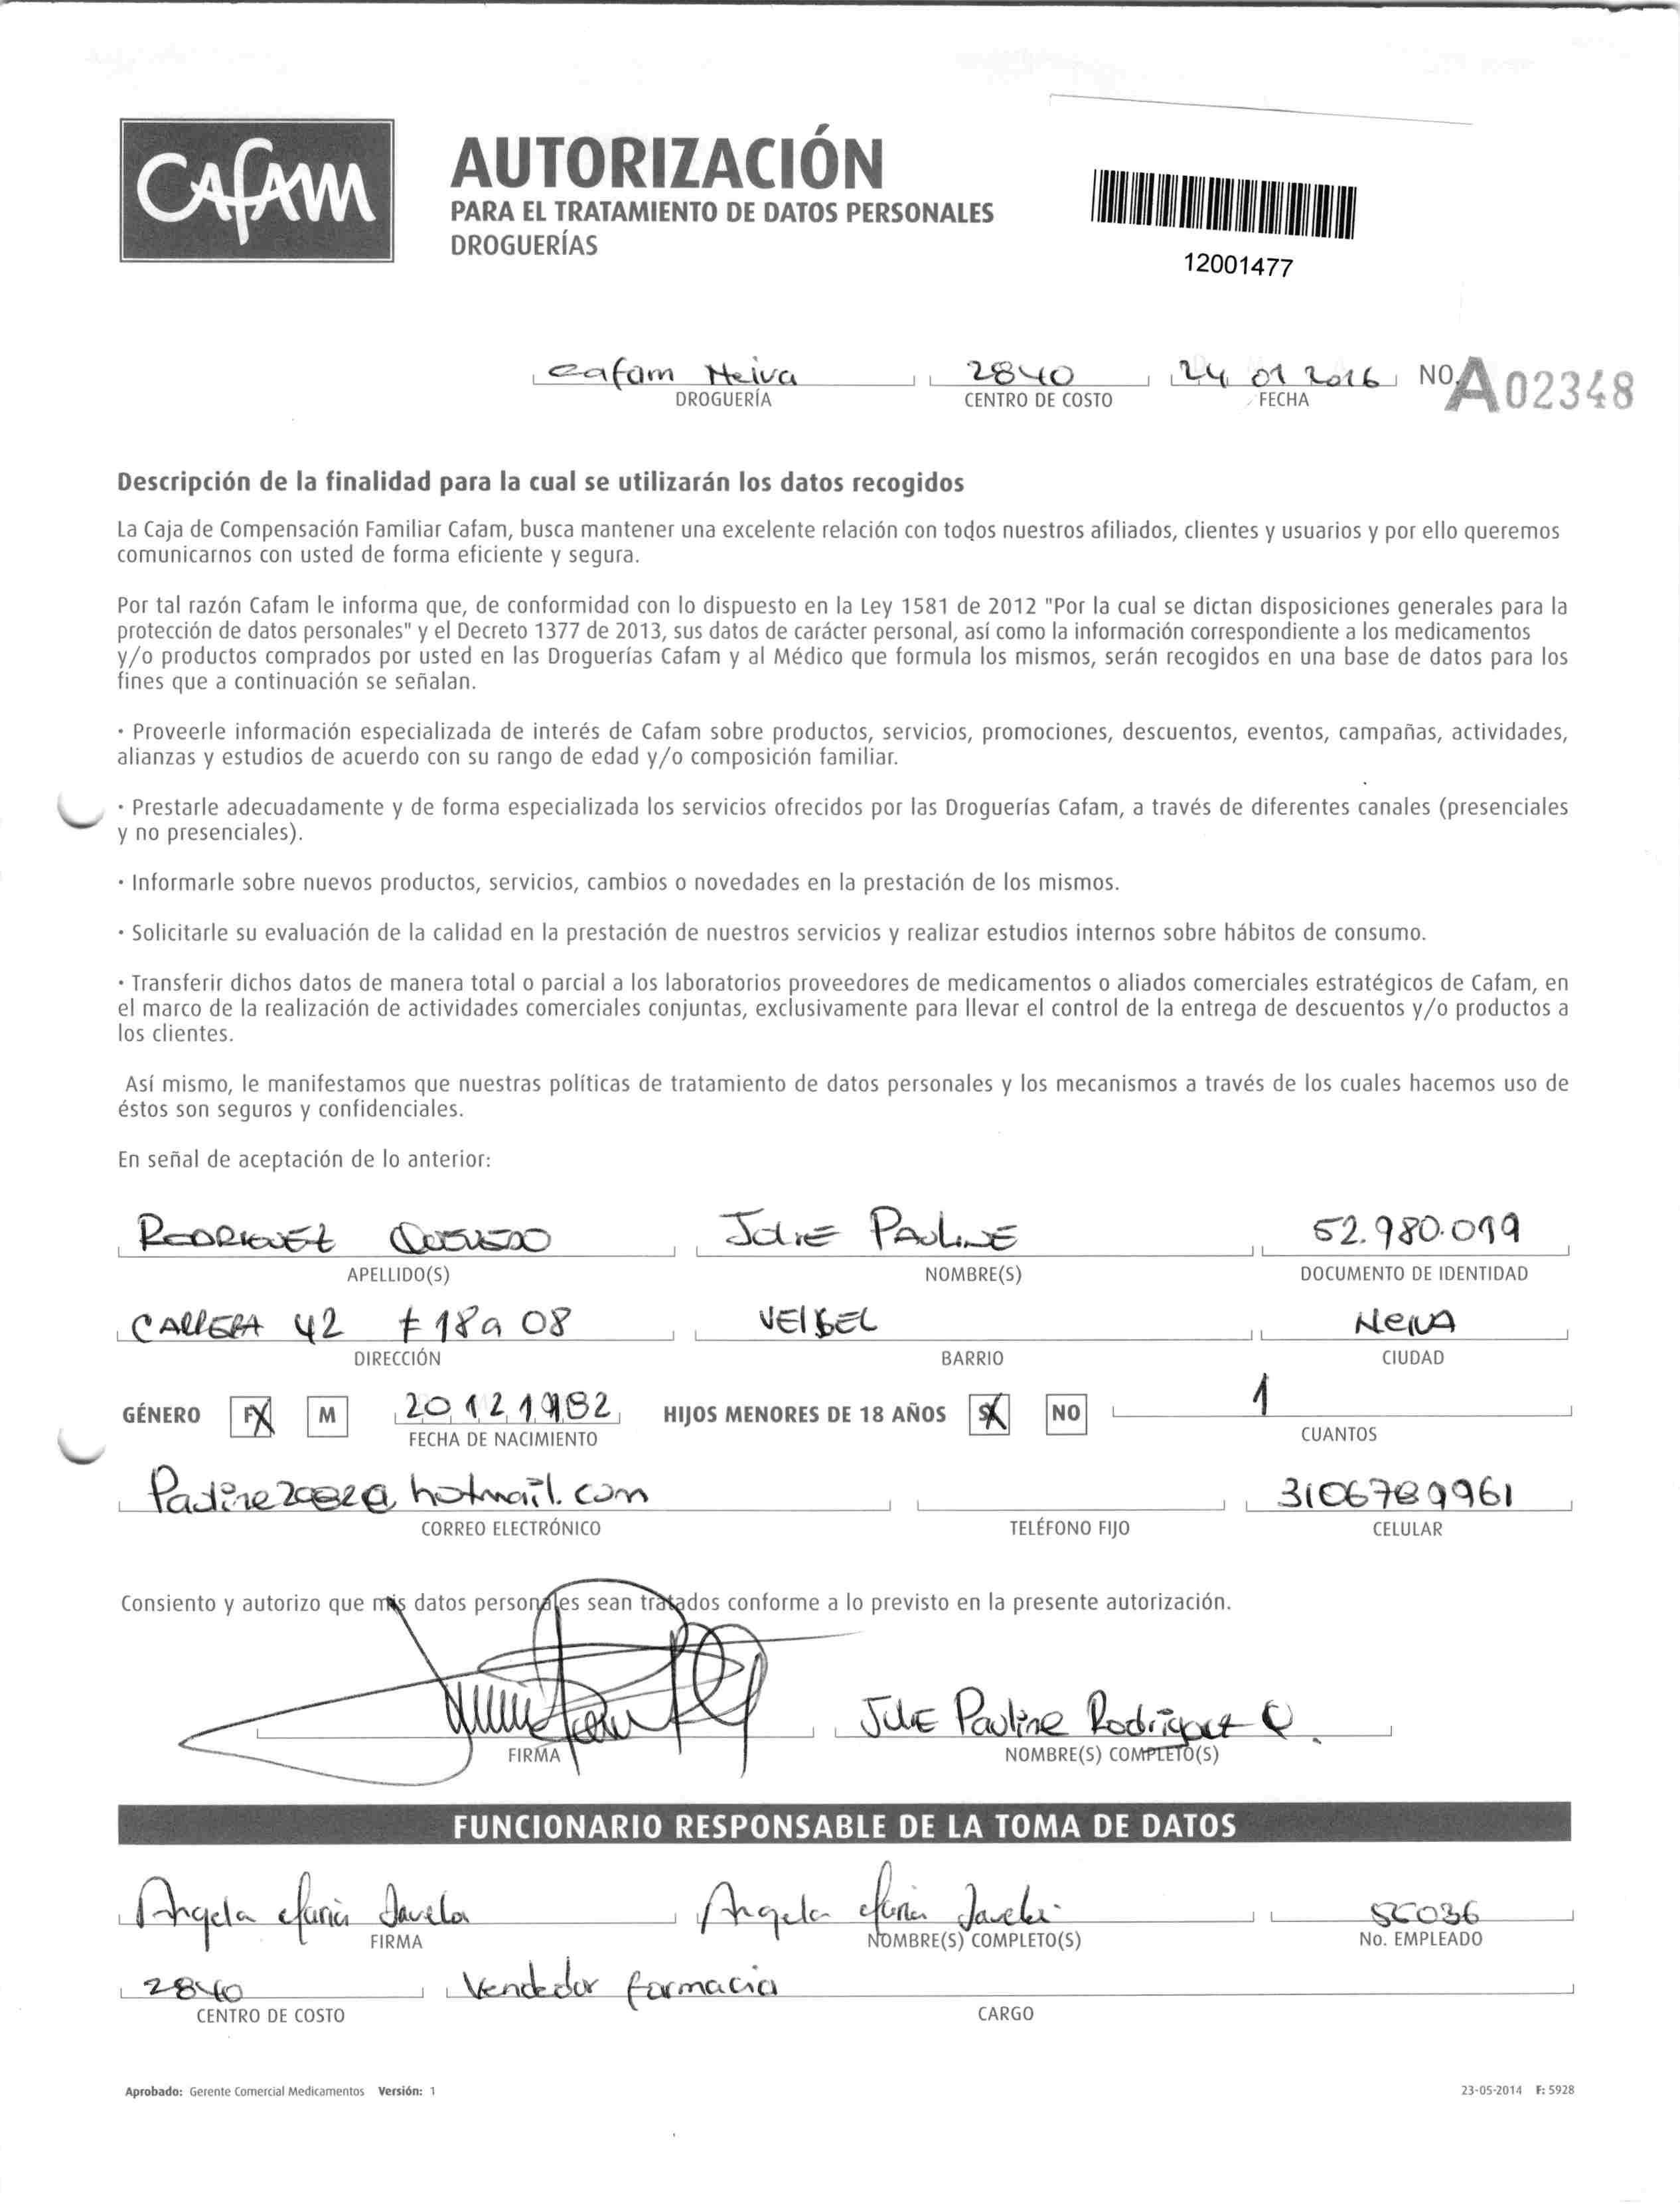 CAFAM
AUTORIZACIÓN
PARA EL TRATAMIENTO DE DATOS PERSONALES
DROGUERÍAS
12001477
Cafam Neiva 2840 24 01 2016 NO. A02348
DROGUERÍA CENTRO DE COSTO FECHA
Descripción de la finalidad para la cual se utilizarán los datos recogidos
La Caja de Compensación Familiar Cafam, busca mantener una excelente relación con todos nuestros afiliados, clientes y usuarios y por ello queremos
comunicarnos con usted de forma eficiente y segura.
Por tal razón Cafam le informa que, de conformidad con lo dispuesto en la Ley 1581 de 2012 "Por la cual se dictan disposiciones generales para la
protección de datos personales" y el Decreto 1377 de 2013, sus datos de carácter personal, así como la información correspondiente a los medicamentos
y/o productos comprados por usted en las Droguerías Cafam y al Médico que formula los mismos, serán recogidos en una base de datos para los
fines que a continuación se señalan.
· Proveerle información especializada de interés de Cafam sobre productos, servicios, promociones, descuentos, eventos, campañas, actividades,
alianzas y estudios de acuerdo con su rango de edad y/o composición familiar.
· Prestarle adecuadamente y de forma especializada los servicios ofrecidos por las Droguerías Cafam, a través de diferentes canales (presenciales
y no presenciales).
· Informarle sobre nuevos productos, servicios, cambios o novedades en la prestación de los mismos.
· Solicitarle su evaluación de la calidad en la prestación de nuestros servicios y realizar estudios internos sobre hábitos de consumo.
· Transferir dichos datos de manera total o parcial a los laboratorios proveedores de medicamentos o aliados comerciales estratégicos de Cafam, en
el marco de la realización de actividades comerciales conjuntas, exclusivamente para llevar el control de la entrega de descuentos y/o productos a
los clientes.
Así mismo, le manifestamos que nuestras políticas de tratamiento de datos personales y los mecanismos a través de los cuales hacemos uso de
éstos son seguros y confidenciales.
En señal de aceptación de lo anterior:
RODRIGUEZ QUEVEDO JULIE PAULINE 52.980.099
APELLIDO(S) NOMBRE(S) DOCUMENTO DE IDENTIDAD
CARRERA 42 # 18a 08 VERGEL NEIVA
DIRECCIÓN BARRIO CIUDAD
GÉNERO F X M 20 12 1982 HIJOS MENORES DE 18 AÑOS SI X NO 1
FECHA DE NACIMIENTO CUANTOS
@hotmail.com
CORREO ELECTRÓNICO TELÉFONO FIJO CELULAR
Consiento y autorizo que mis datos personales sean tratados conforme a lo previsto en la presente autorización.
Julie Pauline Rodriguez Q.
FIRMA NOMBRE(S) COMPLETO(S)
FUNCIONARIO RESPONSABLE DE LA TOMA DE DATOS
Angela Maria Javela Angela Maria Javela 56036
FIRMA NOMBRE(S) COMPLETO(S) No. EMPLEADO
2840 Vendedor farmacia
CENTRO DE COSTO CARGO
Aprobado: Gerente Comercial Medicamentos Versión: 1 23-05-2014 F: 5928